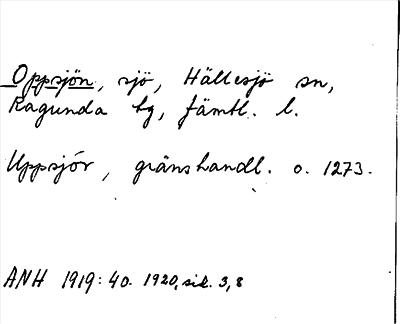 Oppsjön, sjö, Hällesjö sn,
Ragunda tg, Jämtl. l.
Uppsjór, gränshandl. o. 1273.
ANH 1919:40. 1920, sid. 3, 8